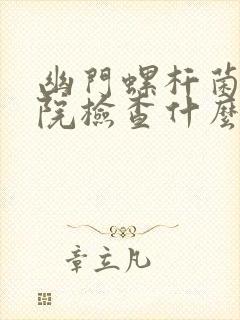 幽門螺杆菌
院檢查什麼
章立凡